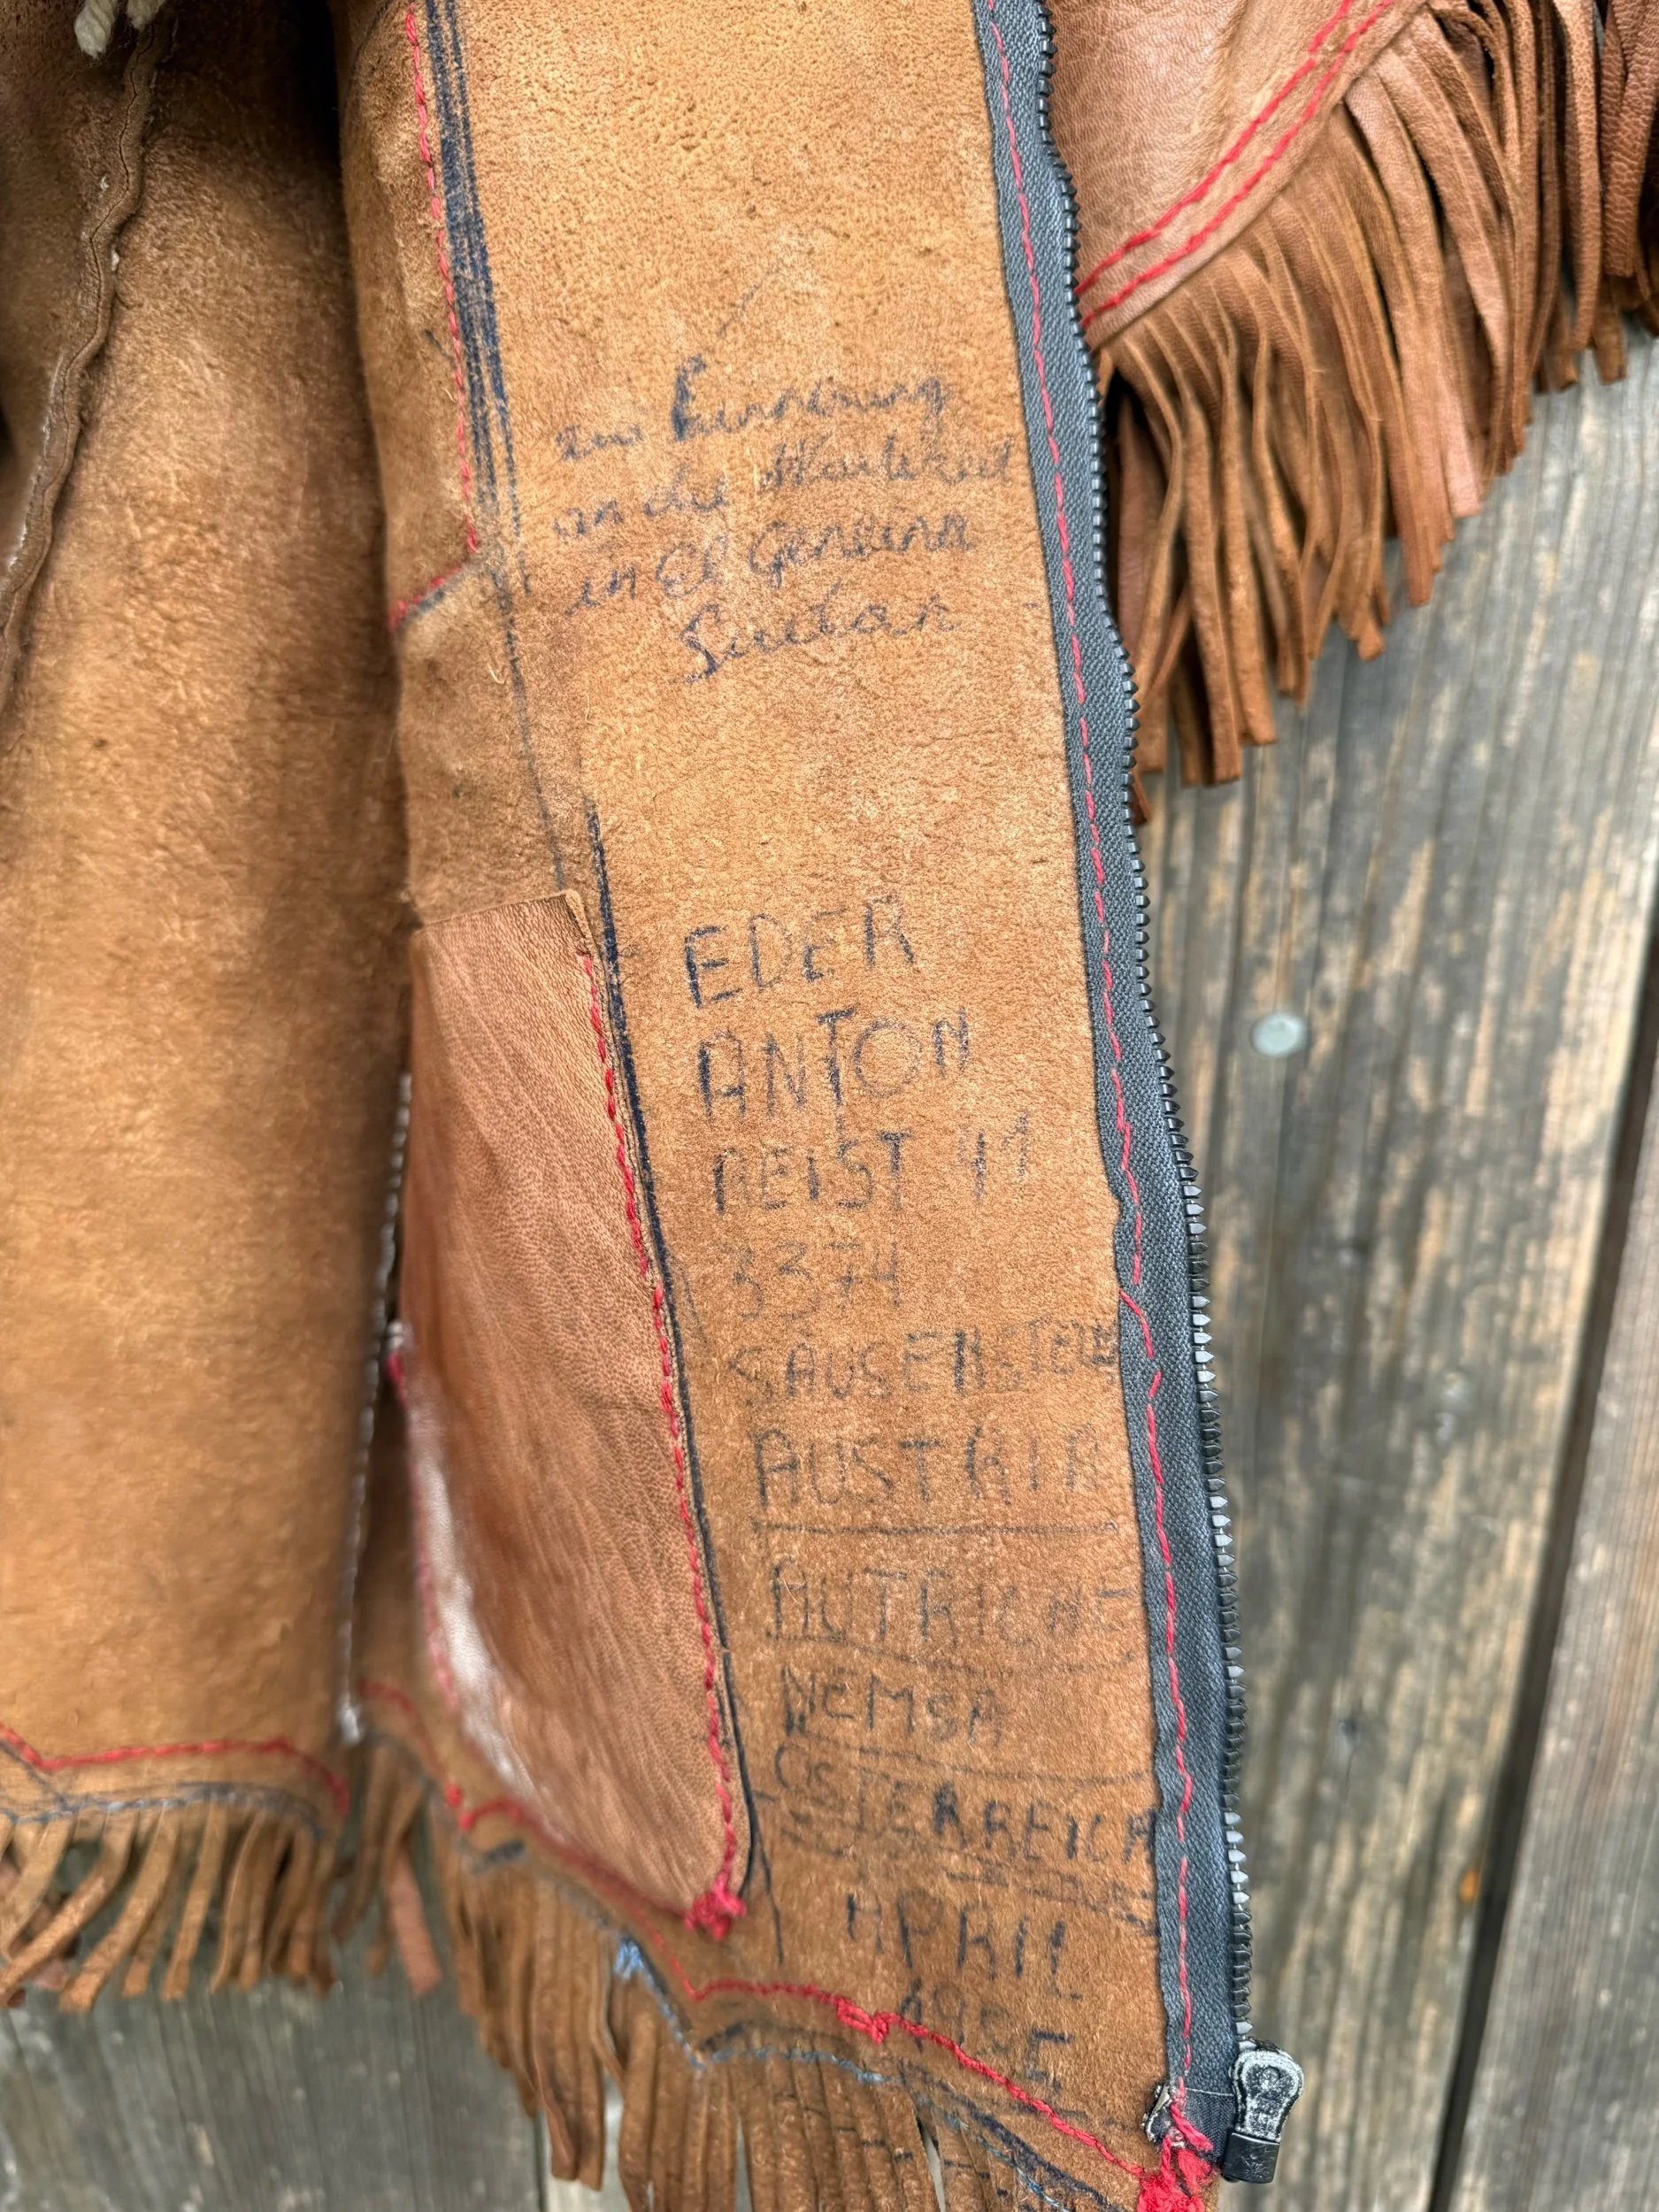 zur Erinnerung
an die
in El Geneina
Sudan
EDER
ANTON
REIST 41
3374
SÄUSENSTEIN
AUSTRIA
AUTRICHE
NEMSA
ÖSTERREICH
APRIL